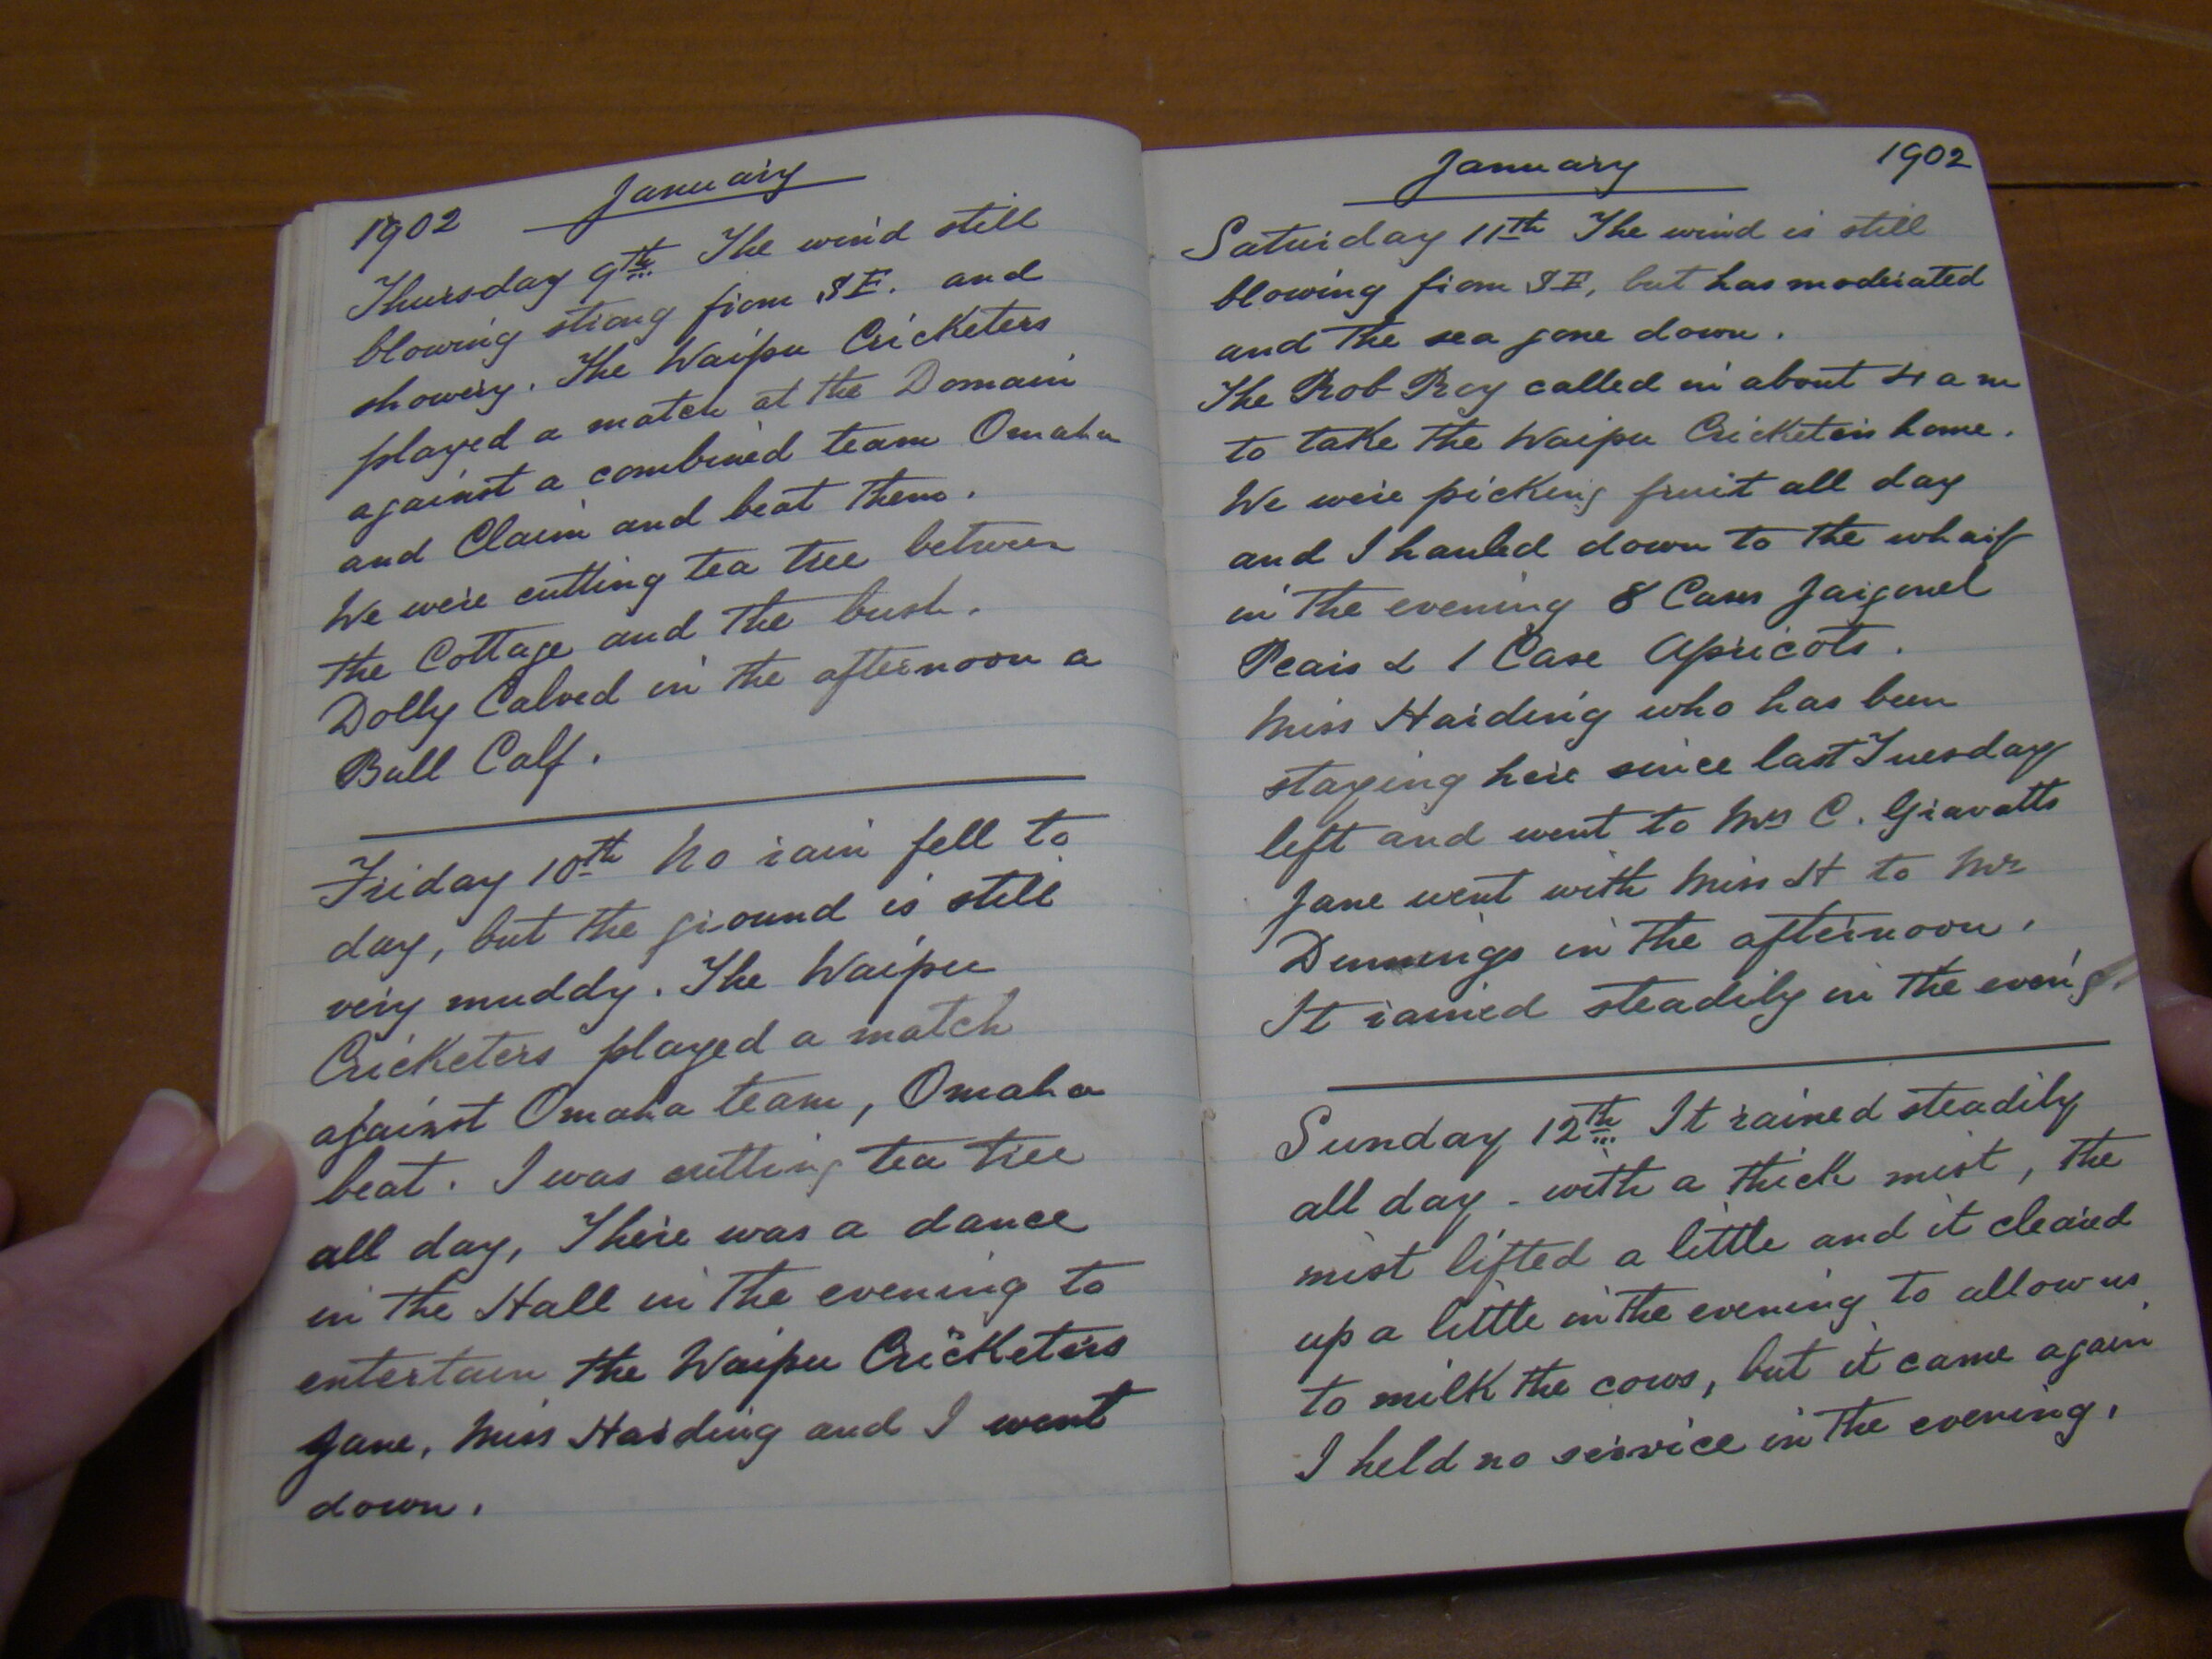 1902 January
Thursday 9th The wind still
blowing strong from SE. and
showery. The Waipu Cricketers
played a match at the Domain
against a combined team Omaha
and Claim and beat them.
We were cutting tea tree between
the Cottage and the bush.
Dolly Calved in the afternoon a
Bull Calf.
Friday 10th No rain fell to
day, but the ground is still
very muddy. The Waipu
Cricketers played a match
against Omaha team, Omaha
beat. I was cutting tea tree
all day, There was a dance
in the Hall in the evening to
entertain the Waipu Cricketers
Jane, Miss Harding and I went
down.
January 1902
Saturday 11th The wind is still
blowing from SE, but has moderated
and the sea gone down.
The Rob Roy called in about 4 a m
to take the Waipu Cricketers home.
We were picking fruit all day
and I hauled down to the wharf
in the evening 8 Cases Jargonel
Pears & 1 Case Apricots.
Miss Harding who has been
staying here since last Tuesday
left and went to Mrs C. Gravatts
Jane went with Miss H to Mr
Dunnings in the afternoon.
It rained steadily in the even'g.
Sunday 12th It rained steadily
all day - with a thick mist, the
mist lifted a little and it cleared
up a little in the evening to allow us
to milk the cows, but it came again
I held no service in the evening.